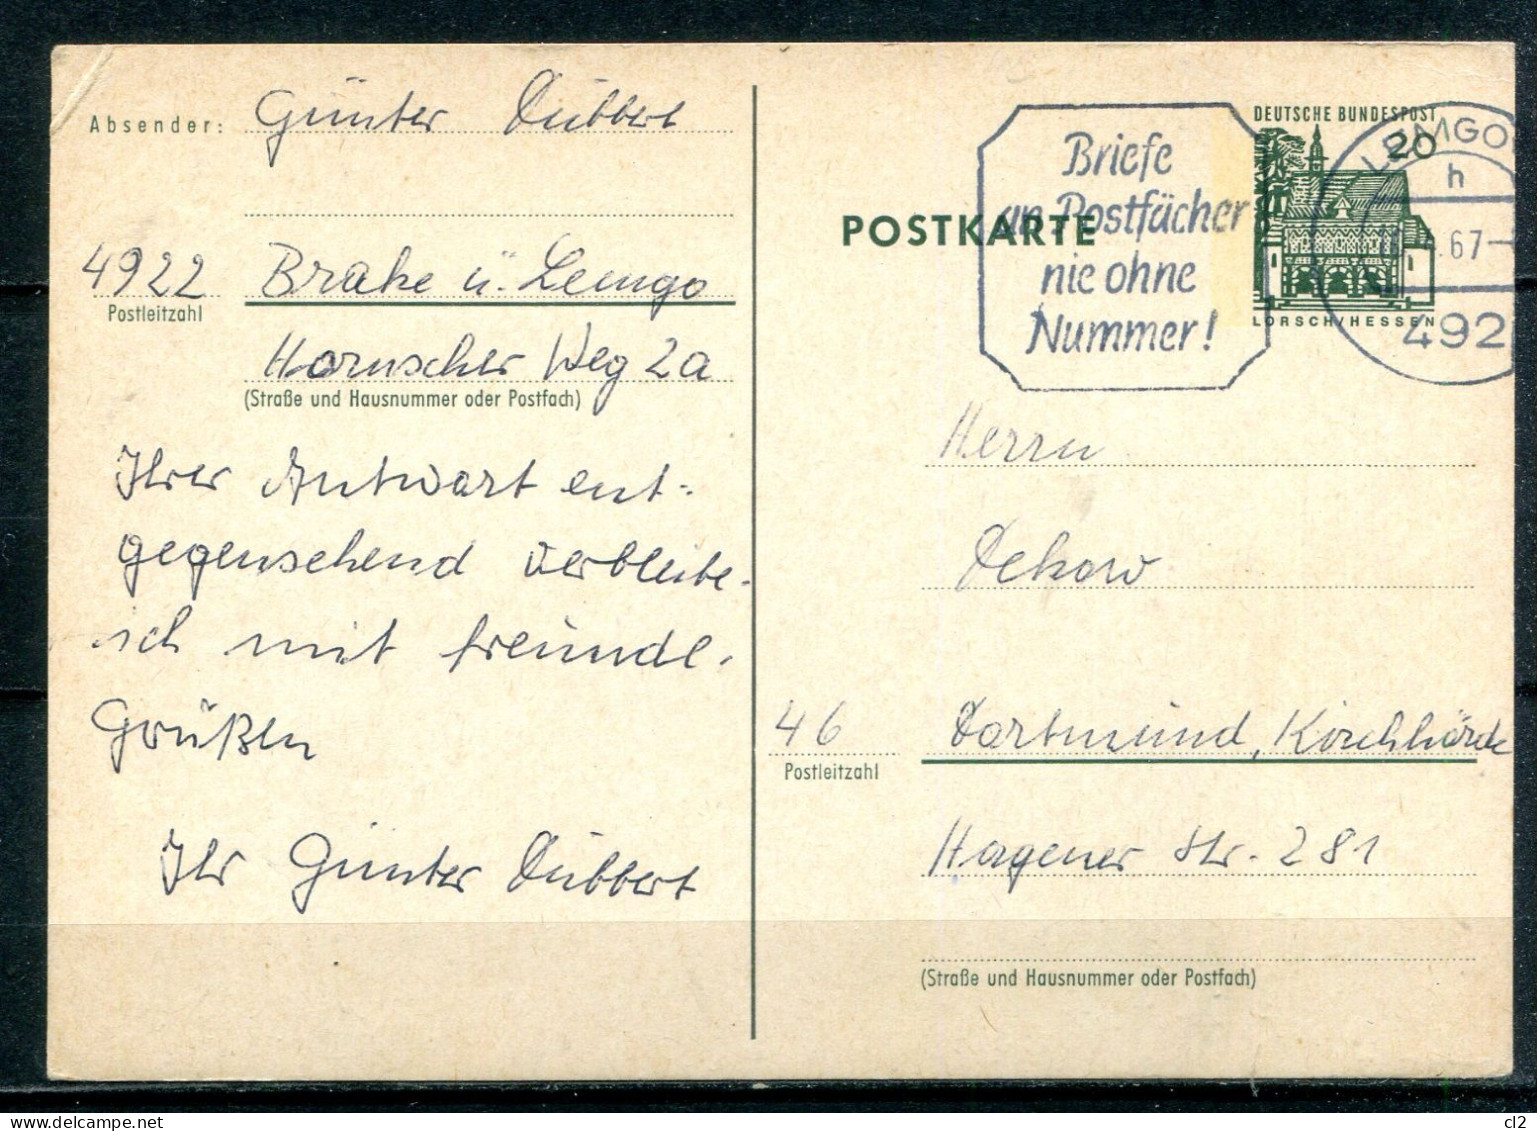 Absender: Günter Dübbert
4922 Brake ü. Lemgo
Postleitzahl
Hornscher Weg 2a
(Straße und Hausnummer oder Postfach)
Ihrer Antwort ent-
gegensehend verbleibe
ich mit freundl.
Grüßen
Ihr Günter Dübbert
Briefe
an Postfächer
nie ohne
Nummer!
POSTKARTE
DEUTSCHE BUNDESPOST
20
LORSCH/HESSEN
LEMGO
h
.67-
492
Herrn
Dekow
46 Dortmund, Kirchhörde
Postleitzahl
Hagener Str. 281
(Straße und Hausnummer oder Postfach)
cl2